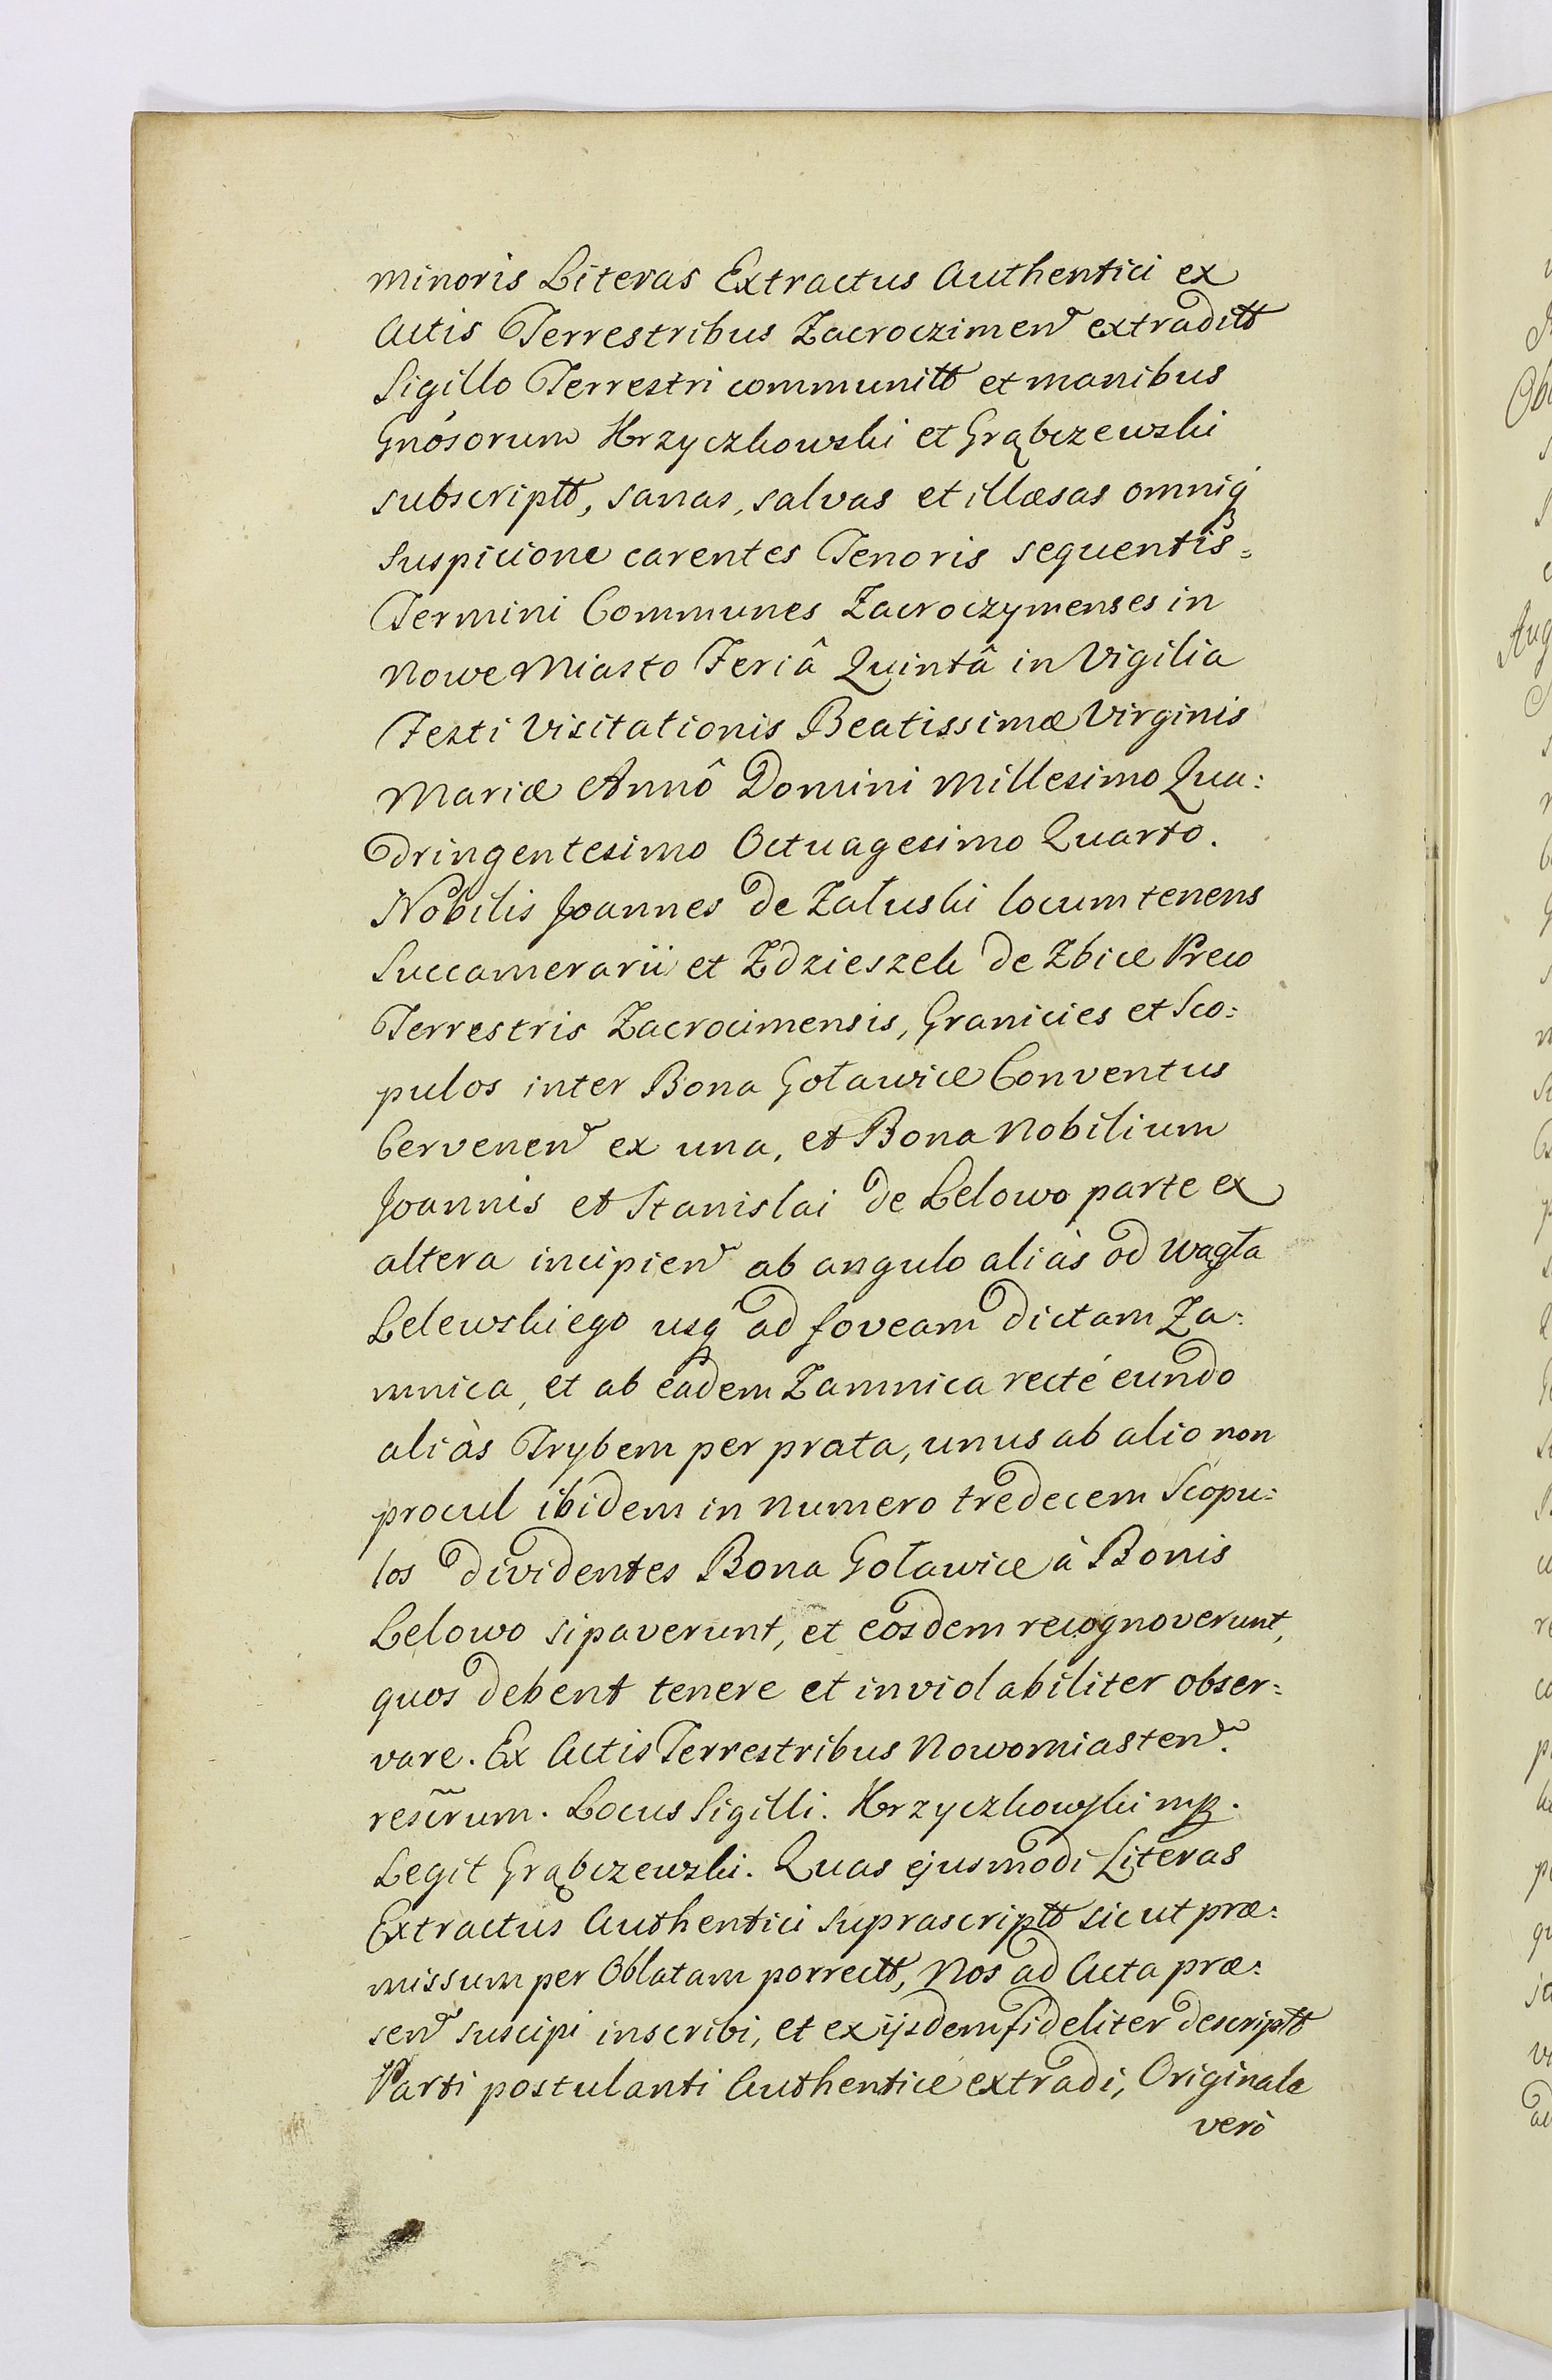 minoris Literas Extractus Authentici ex
Actis Terrestribus Zacroczimen extraditt
Sigillo Terrestri communitt et manibus
Gnósorum Krzyczkowski et Grąbczewski
subscriptt, sanas, salvas et illæsas omniq
suspicione carentes Tenoris sequentis=
Termini Communes Zacroczymenses in
Nowe Miasto Feriâ Quintâ in Vigilia
Festi Visitationis Beatissimæ Virginis
Mariæ Annô Domini Millesimo Qua:
dringentesimo Octuagesimo Quarto.
Nobilis Joannes de Załuski locum tenens
Succamerarii et Zdzieszek de Zbice Preco
Terrestris Zacrocimensis, Granicies et Sco:
pulos inter Bona Goławice Conventus
Cervenen ex una, et Bona Nobilium
Joannis et Stanislai de Lelowo parte ex
altera incipien ab angulo aliàs od Wągła
Lelewskiego usq ad foveam dictam Za:
mnica, et ab eadem Zamnica recté eundo
aliàs Trybem per prata, unus ab alio non
procul ibidem in numero tredecem Scopu:
los dividentes Bona Goławice à Bonis
Lelowo sipaverunt, et eosdem recognoverunt,
quos debent tenere et inviolabiliter obser:
vare. Ex Actis Terrestribus Nowomiasten.
resc̃rum. Locus Sigilli. Krzyczkowski mp.
Legit Grąbczewski. Quas ejusmodi Literas
Extractus Authentici suprascriptt sicut præ:
missum per Oblatam porrectt, Nos ad Acta præ:
sen suscipi inscribi, et ex ijsdem fideliter descriptt
Parti postulanti Authenticé extradi, Originale
verò